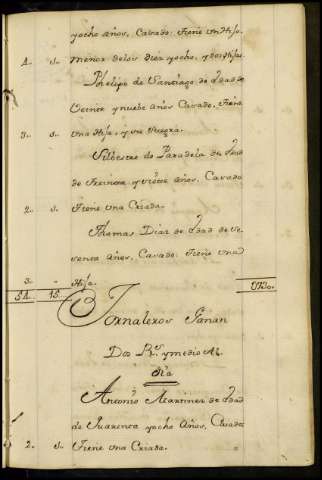 yocho años, Casado: tiene un Hijo
4. s. menor delos diez yocho, y dos Hijas
Phelipe de Santiago de hedad de
Veinte y nuebe años Casado, tiene
3. s. una Hija, y su Suegra.
Silbestre de Paradela de hedad
de treinta, y años, Casado
2. s. tiene una Criada.
Thomas Diaz de hedad de se
senta años, Casado: tiene una
3. Hija.
54. 15.
Jornaleros Ganan
Dos R.s y medio Al
dia
Antonio Martinez de hedad
de quarenta yocho años, Casado
2. s. tiene una Criada.